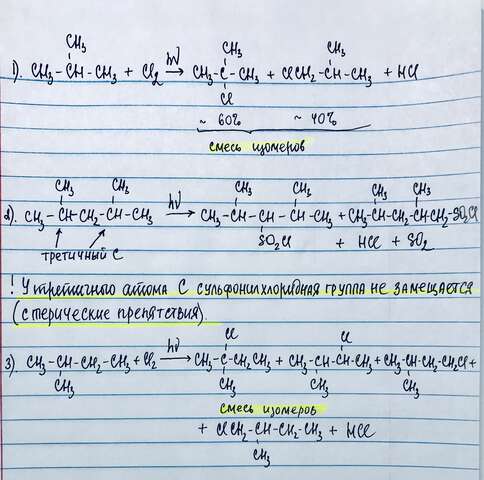 CH₃ CH₃ CH₃
1). CH₃-CH-CH₃ + Cl₂ hν→ CH₃-C-CH₃ + ClCH₂-CH-CH₃ + HCl
Cl
~ 60% ~ 40%
смесь изомеров
CH₃ CH₃ CH₃ CH₃ CH₃ CH₃
2). CH₃-CH-CH₂-CH-CH₃ hν→ CH₃-CH-CH-CH-CH₃ + CH₃-CH-CH₂-CH-CH₂-SO₂Cl
третичный C SO₂Cl + HCl + SO₂
! У третичного атома C сульфонилхлоридная группа не замещается
(стерические препятствия).
Cl Cl
3). CH₃-CH-CH₂-CH₃ + Cl₂ hν→ CH₃-C-CH₂CH₃ + CH₃-CH-CH-CH₃ + CH₃-CH-CH₂-CH₂Cl +
CH₃ CH₃ CH₃ CH₃
смесь изомеров
+ ClCH₂-CH-CH₂-CH₃ + HCl
CH₃